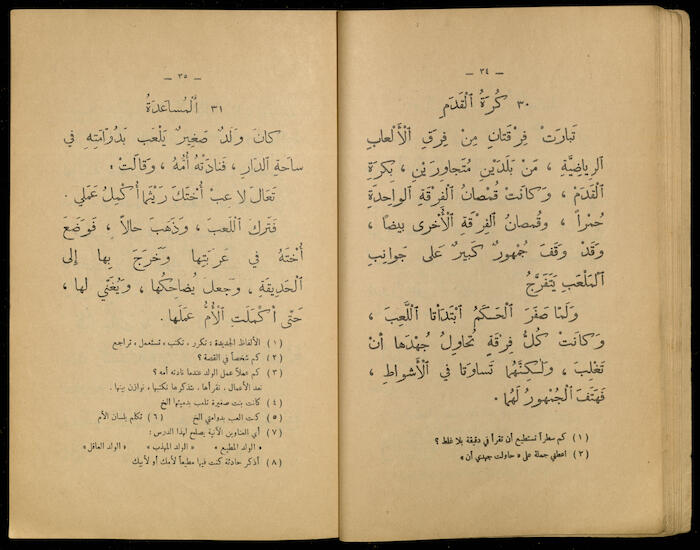 – ٣٤ –
٣٠ كُرَةُ ٱلْقَدَمِ
تَبارَتْ فِرْقَتانِ مِنْ فِرَقِ ٱلْأَلْعابِ
ٱلرِياضِيَّةِ ، مَنْ بَلَدَيْنِ مُتَجاوِرَيْنِ ، بِكُرَةِ
ٱلْقَدَمِ ، وَكانَتْ قُمْصانُ ٱلْفِرْقَةِ ٱلْواحِدَةِ
حُمْراً ، وقُمصانُ ٱلْفِرْقَةِ ٱلْأُخْرى بيضاً ،
وَقَدْ وَقَفَ جُمْهورٌ كَبيرٌ عَلى جَوانِبِ
ٱلمَلْعَبِ يَتَفَرَّجُ
وَلَمّا صَفَرَ ٱلْحَكَمُ ٱبْتَدَأَتا ٱللَّعِبَ ،
وَكانَتْ كُلُّ فِرقَةٍ تُحاوِلُ جُهْدَها أَنْ
تَغْلِبَ ، وَلٰكِنَّهُما تَساوَتا في ٱلْأَشْواطِ ،
فَهَتَفَ ٱلْجُمْهورُ لَهُما .
(١) كم سطراً تستطيع أن تقرأ في دقيقة بلا غلط ؟
(٢) اعطي جملة على «حاولت جهدي أن»
– ٣٥ –
٣١ أَلْمُساعَدَةُ
كانَ وَلَدٌ صَغيرٌ يَلْعَب بَدُوّامَتِهِ في
ساحَةِ ٱلدّارِ ، فَنادَتْهُ أُمُّهُ ، وَقالَتْ :
تَعالَ لاعِبْ أُخْتَكَ رَيْثَما أُكْمِلُ عَمَلي .
فَتَركَ ٱللَّعِبَ ، وَذَهَبَ حالاً ، فَوَضَعَ
أُخْتَهُ في عَرَبَتِها وَخَرَجَ بِها إِلى
ٱلْحَديقَةِ ، وَجعَلَ يُضاحِكُها ، وَيُغَنّي لها ،
حَتّى أَكْمَلَتِ ٱلْأُمُّ عَمَلَها .
(١) الألفاظ الجديدة : تكرر ، تكتب ، تستعمل ، تراجع
(٢) كم شخصاً في القصة ؟
(٣) كم عملاً عمل الولد عندما نادته أمه ؟
نعد الأعمال ، نقرأها ، نتذكرها نكتبها ، نوازن بينها .
(٤) كانت بنت صغيرة تلعب بدميتها الخ
(٥) كنت العب بدوامتي الخ (٦) تكلم بلسان الأم
(٧) أي العناوين الآتية يصلح لهذا الدرس :
« الولد المطيع » « الولد المهذب » « الولد العاقل »
(٨) أذكر حادثة كنت فيها مطيعاً لأمك أو لأبيك